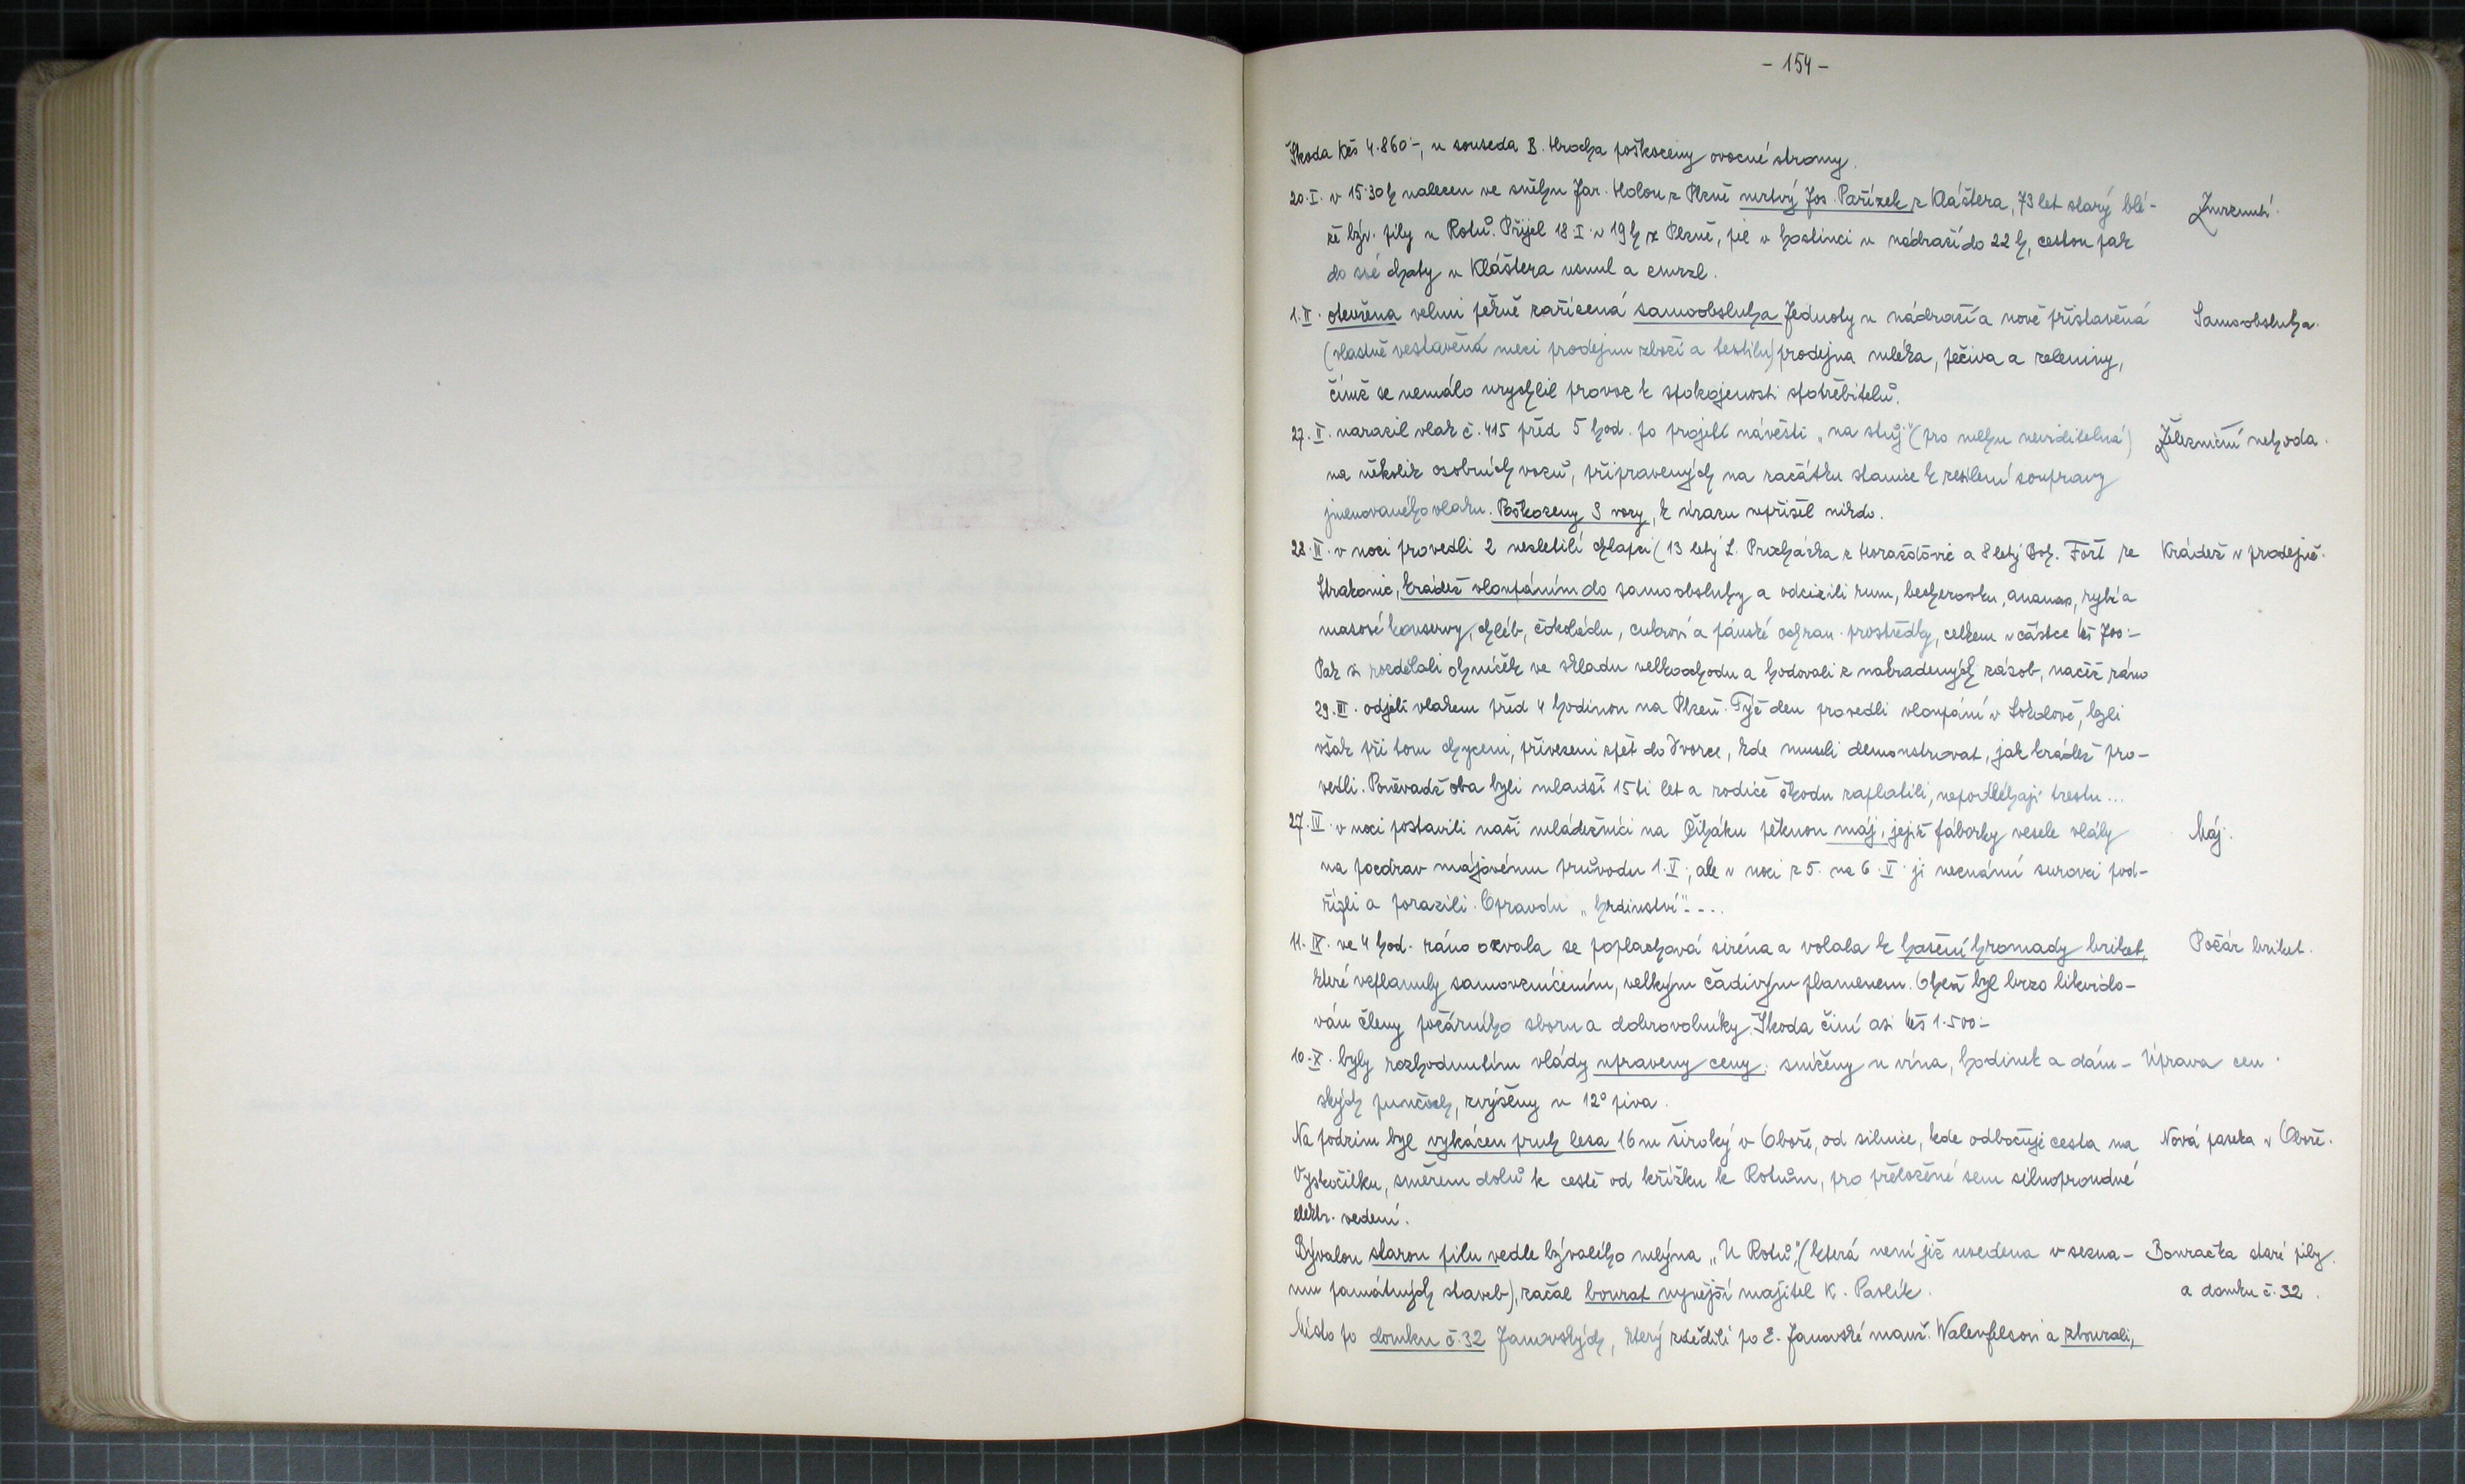 - 154 -
Škoda Kčs 4.860·-, u souseda B. Hrocha poškozeny ovocné stromy.
20.I. v 15·30 h nalezen ve sněhu Jar. Holou z Plzně mrtvý Jos. Pařízek z Kláštera, 73 let starý blí- Zmrznutí.
že býv. pily u Rotů. Přijel 18.I. v 19 h z Plzně, pil v hostinci u nádraží do 22 h, cestou pak
do své chaty u Kláštera usnul a zmrzl.
1.II. otevřena velmi pěkně zařízená samoobsluha Jednoty u nádraží a nově přístavěná Samoobsluha.
(vlastně vestavěná mezi prodejnu zboží a textilu) prodejna mléka, pečiva a zeleniny,
čímž se nemálo urychlil provoz k spokojenosti spotřebitelů.
27.II. narazil vlak č. 415 před 5 hod. po projetí návěsti „na stůj" (pro mlhu neviditelná) Železniční nehoda.
na několik osobních vozů, připravených na začátku stanice k zesílení soupravy
jmenovaného vlaku. Poškozeny 3 vozy, k úrazu nepřišel nikdo.
28.III. v noci provedli 2 nezletilí chlapci (13 letý L. Procházka z Horažďovic a 8 letý Boh. Fořt ze Krádež v prodejně.
Strakonic, krádež vloupáním do samoobsluhy a odcizili rum, becherovku, ananas, rybí a
masové konservy, chléb, čokoládu, cukroví a pánské ochran. prostředky, celkem v částce Kčs 700·-
Pak si rozdělali ohníček ve skladu velkoobchodu a hodovali z nakradených zásob, načež ráno
29.III. odjeli vlakem před 4 hodinou na Plzeň. Týž den provedli vloupání v Sokolově, byli
však při tom chyceni, přivezeni zpět do Dvorce, kde museli demonstrovat, jak krádež pro-
vedli. Poněvadž oba byli mladší 15ti let a rodiče škodu zaplatili, nepodléhají trestu...
27.IV. v noci postavili naši mládežníci na Čiháku pěknou máj, jejíž fáborky vesele vlály Máj.
na pozdrav májovému průvodu 1.V., ale v noci z 5. na 6.V. ji neznámí surovci pod-
řízli a porazili. Opravdu „hrdinství"....
11.IX. ve 4 hod. ráno ozvala se poplachová siréna a volala k hašení hromady briket, Požár briket.
které vzplanuly samovznícením, velkým čadivým plamenem. Oheň byl brzo likvido-
ván členy požárního sboru a dobrovolníky. Škoda činí asi Kčs 1.500·-
10.X. byly rozhodnutím vlády upraveny ceny: sníženy u vína, hodinek a dám- Úprava cen.
ských punčoch, zvýšeny u 12° piva.
Na podzim byl vykácen pruh lesa 16 m široký v Oboře, od silnice, kde odbočuje cesta na Nová paseka v Oboře.
Vyskočilku, směrem dolů k cestě od křížku k Rotům, pro přeložené sem silnoproudné
elektr. vedení.
Bývalou starou pilu vedle bývalého mlýna „U Rotů", (která není již uvedena v sezna- Bouračka staré pily
mu památných staveb), začal bourat nynější majitel K. Pavlík. a domku č. 32.
Místo po domku č. 32 Janovských, který zdědili po E. Janovské manž. Walenfelsovi a zbourali,